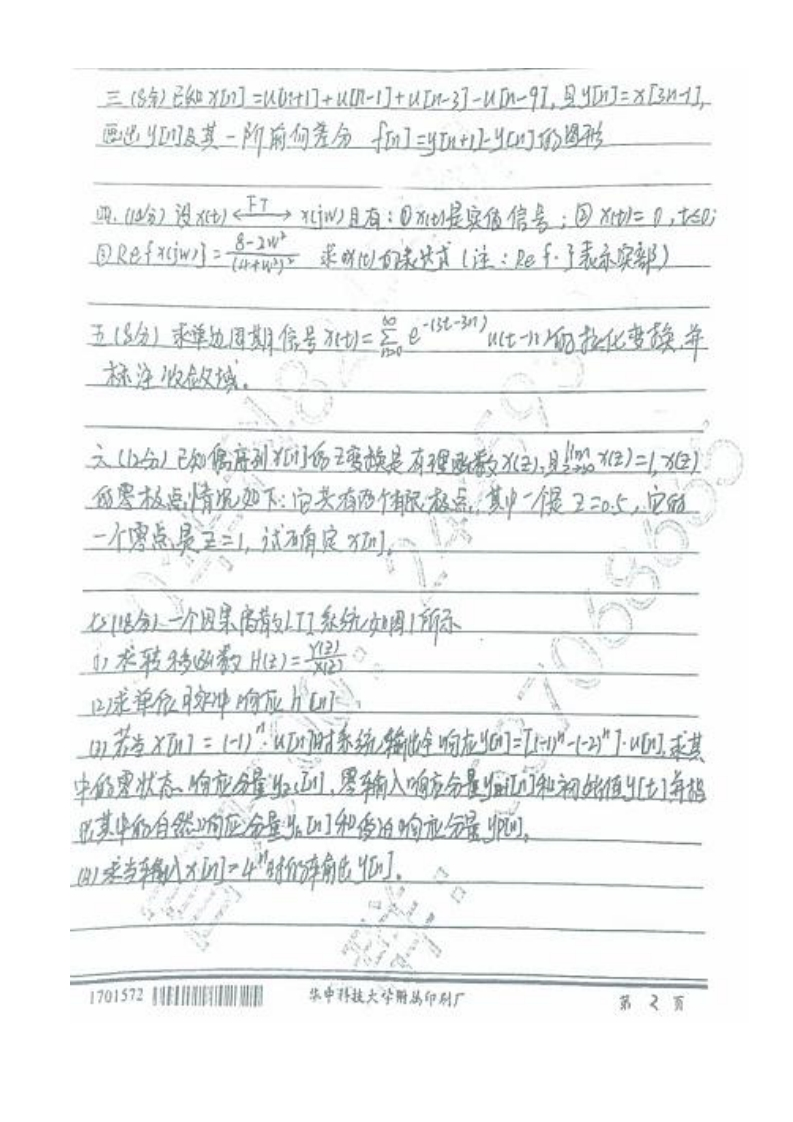 三(8分)已知x[n]=u[n+1]+u[n-1]+u[n-3]-u[n-9],且y[n]=x[3n-1],
画出y[n]及其一阶前向差分 f[n]=y[n+1]-y[n]的图形
四.(12分)设x(t) ←FT→ x(jw)且有:①x(t)是实值信号;②x(t)=0,t≤0;
③Re{x(jw)}=(8-2w²)/(4+w²)² 求x(t)的表达式(注:Re{·}表示实部)
五(8分)求单边周期信号x(t)=∑ e^-(3t-3n) u(t-n)的拉氏变换,并
标注收敛域。
六(12分)已知偶序列x[n]的Z变换是有理函数x(z),且lim x(z)=1,x(z)
的零极点情况如下:它共有两个有限极点,其中一个是 z=0.5,它的
一个零点是z=1,试确定x[n].
七(18分)一个因果离散LTI系统如图1所示
(1)求转移函数H(z)=Y(z)/X(z)
(2)求单位冲响应h[n]
(3)若当x[n]=(-1)ⁿ·u[n]时系统输出全响应y[n]=[(-1)ⁿ-(-2)ⁿ]·u[n],求其
中的零状态响应分量yzs[n],零输入响应分量yzi[n]和初始值 并指
出其中的自然响应分量yn[n]和 响应分量yp[n].
(4)求当输入x[n]=4ⁿ时的输出y[n].
1701572 华中科技大学附属印刷厂 第 2 页